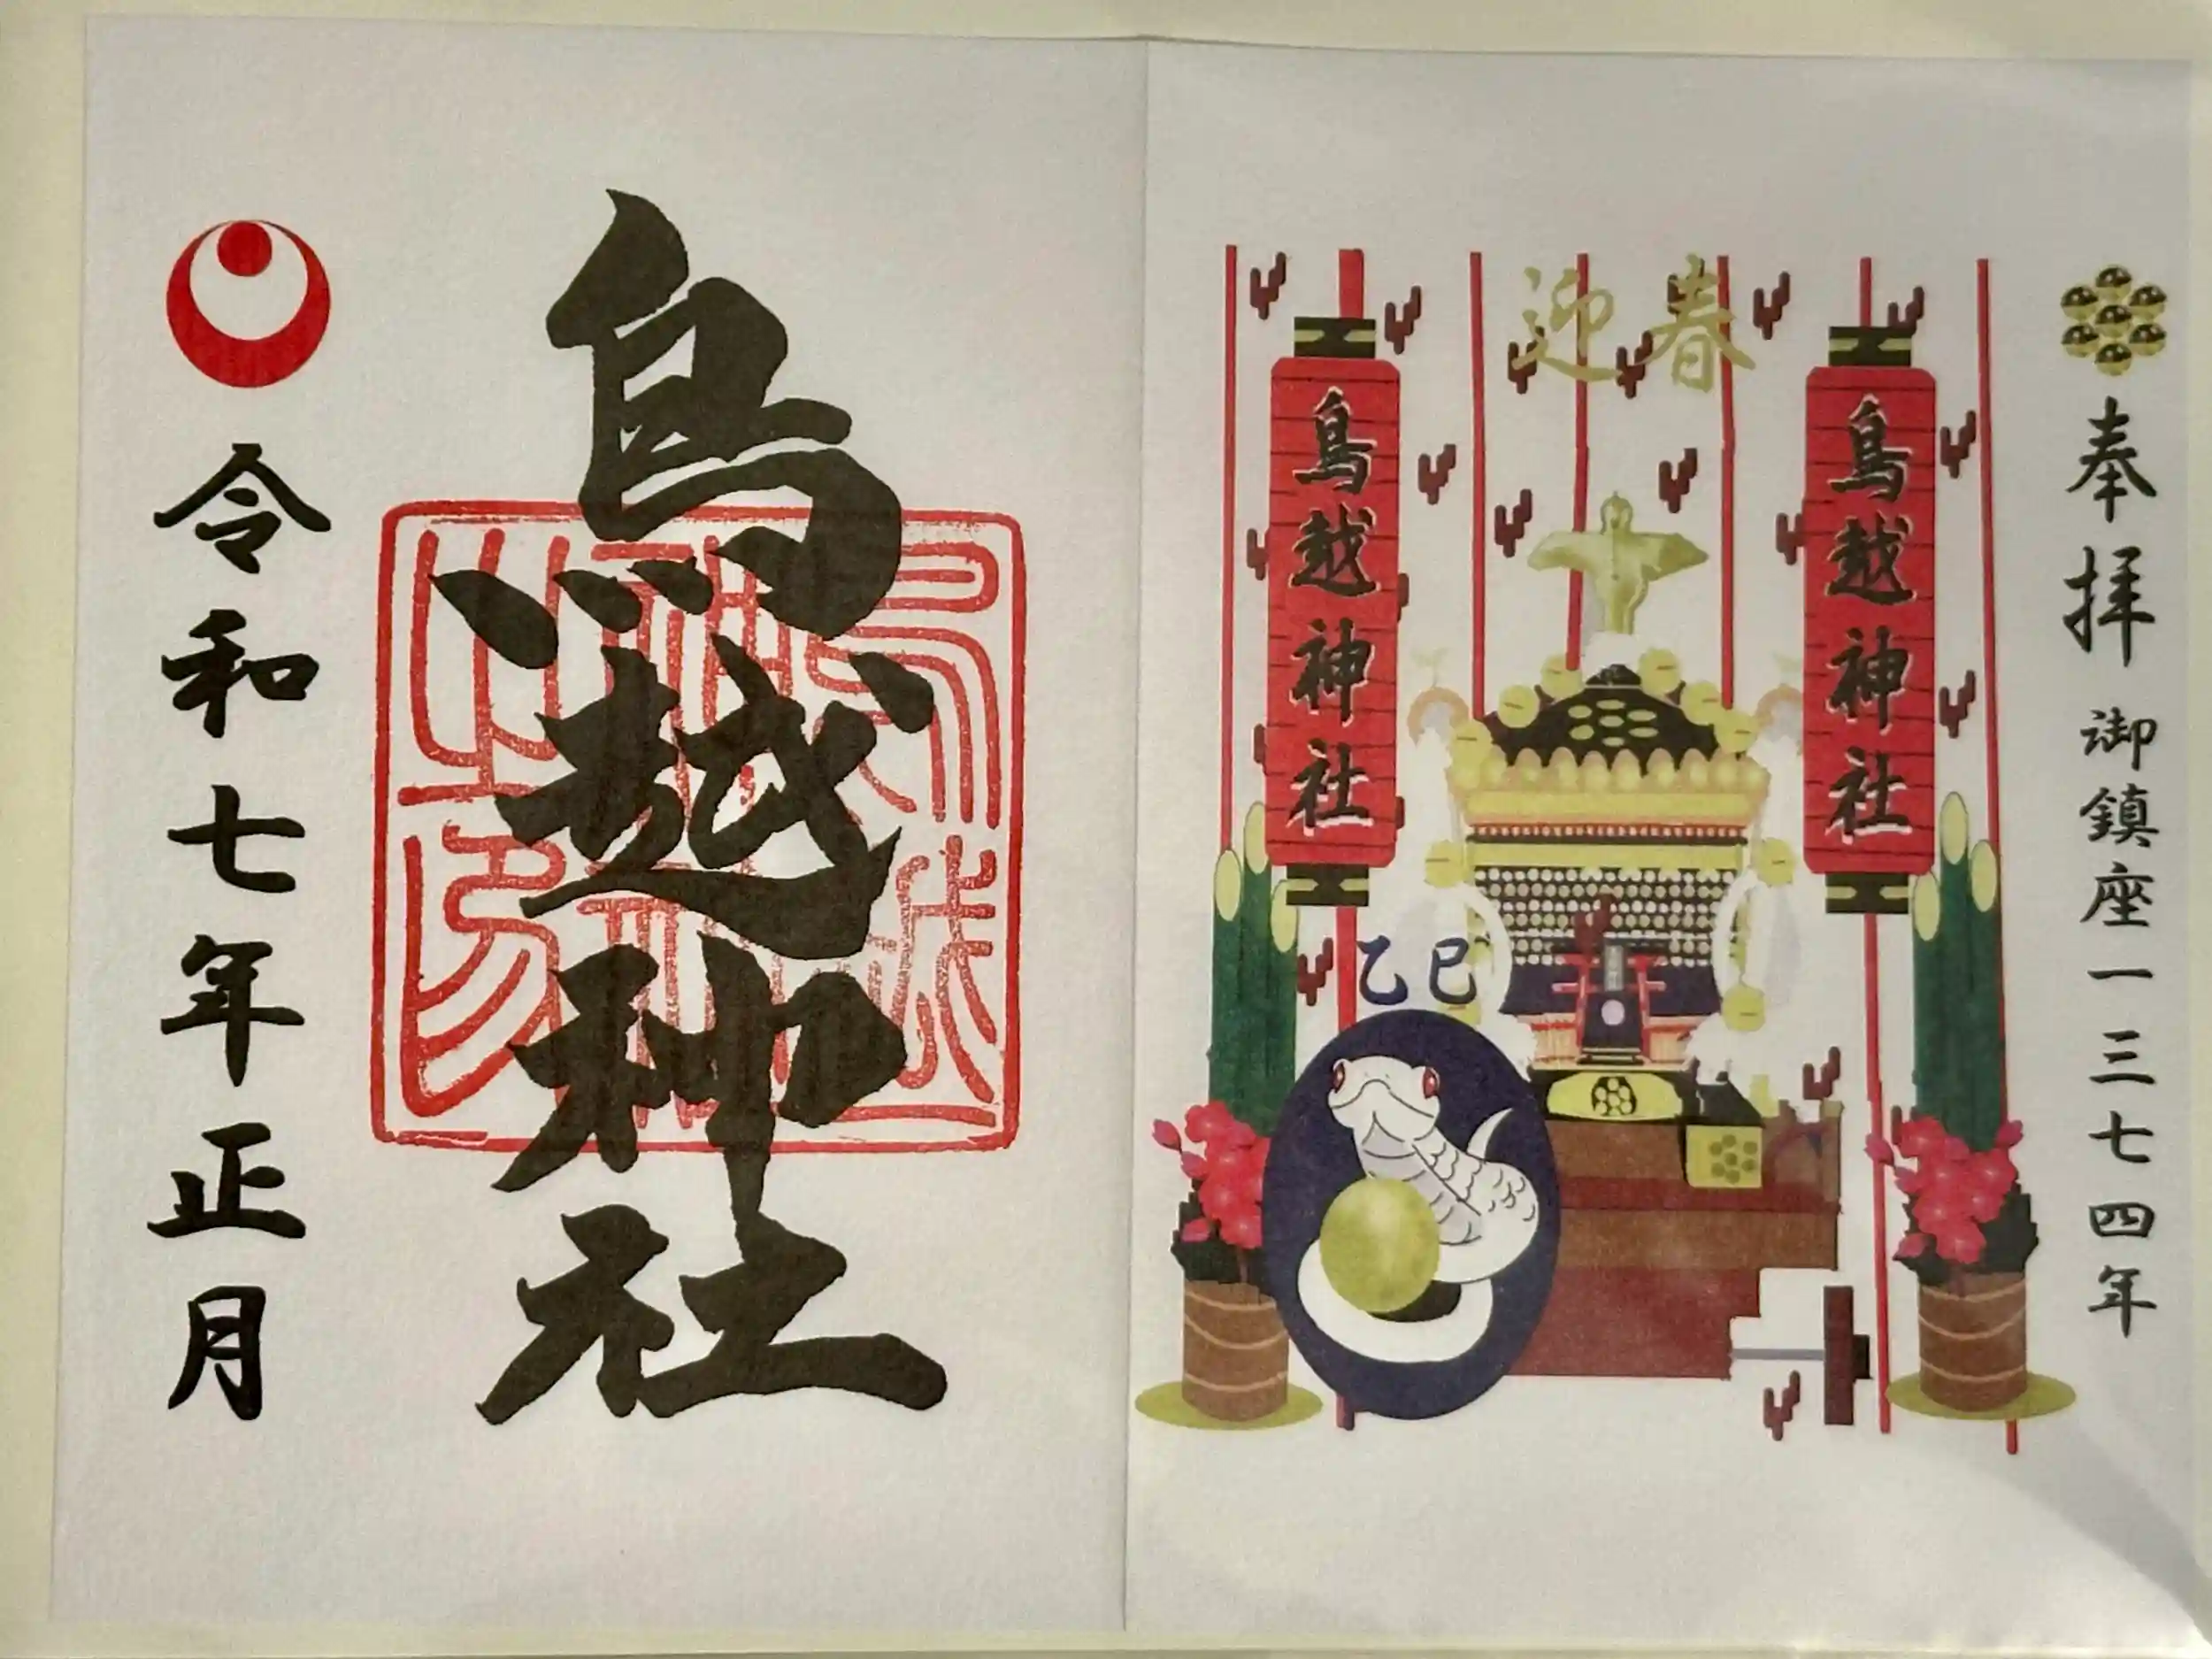 奉拝 御鎮座一三七四年
迎春
鳥越神社
鳥越神社
乙巳
鳥越神社
鳥越神社之印
令和七年正月